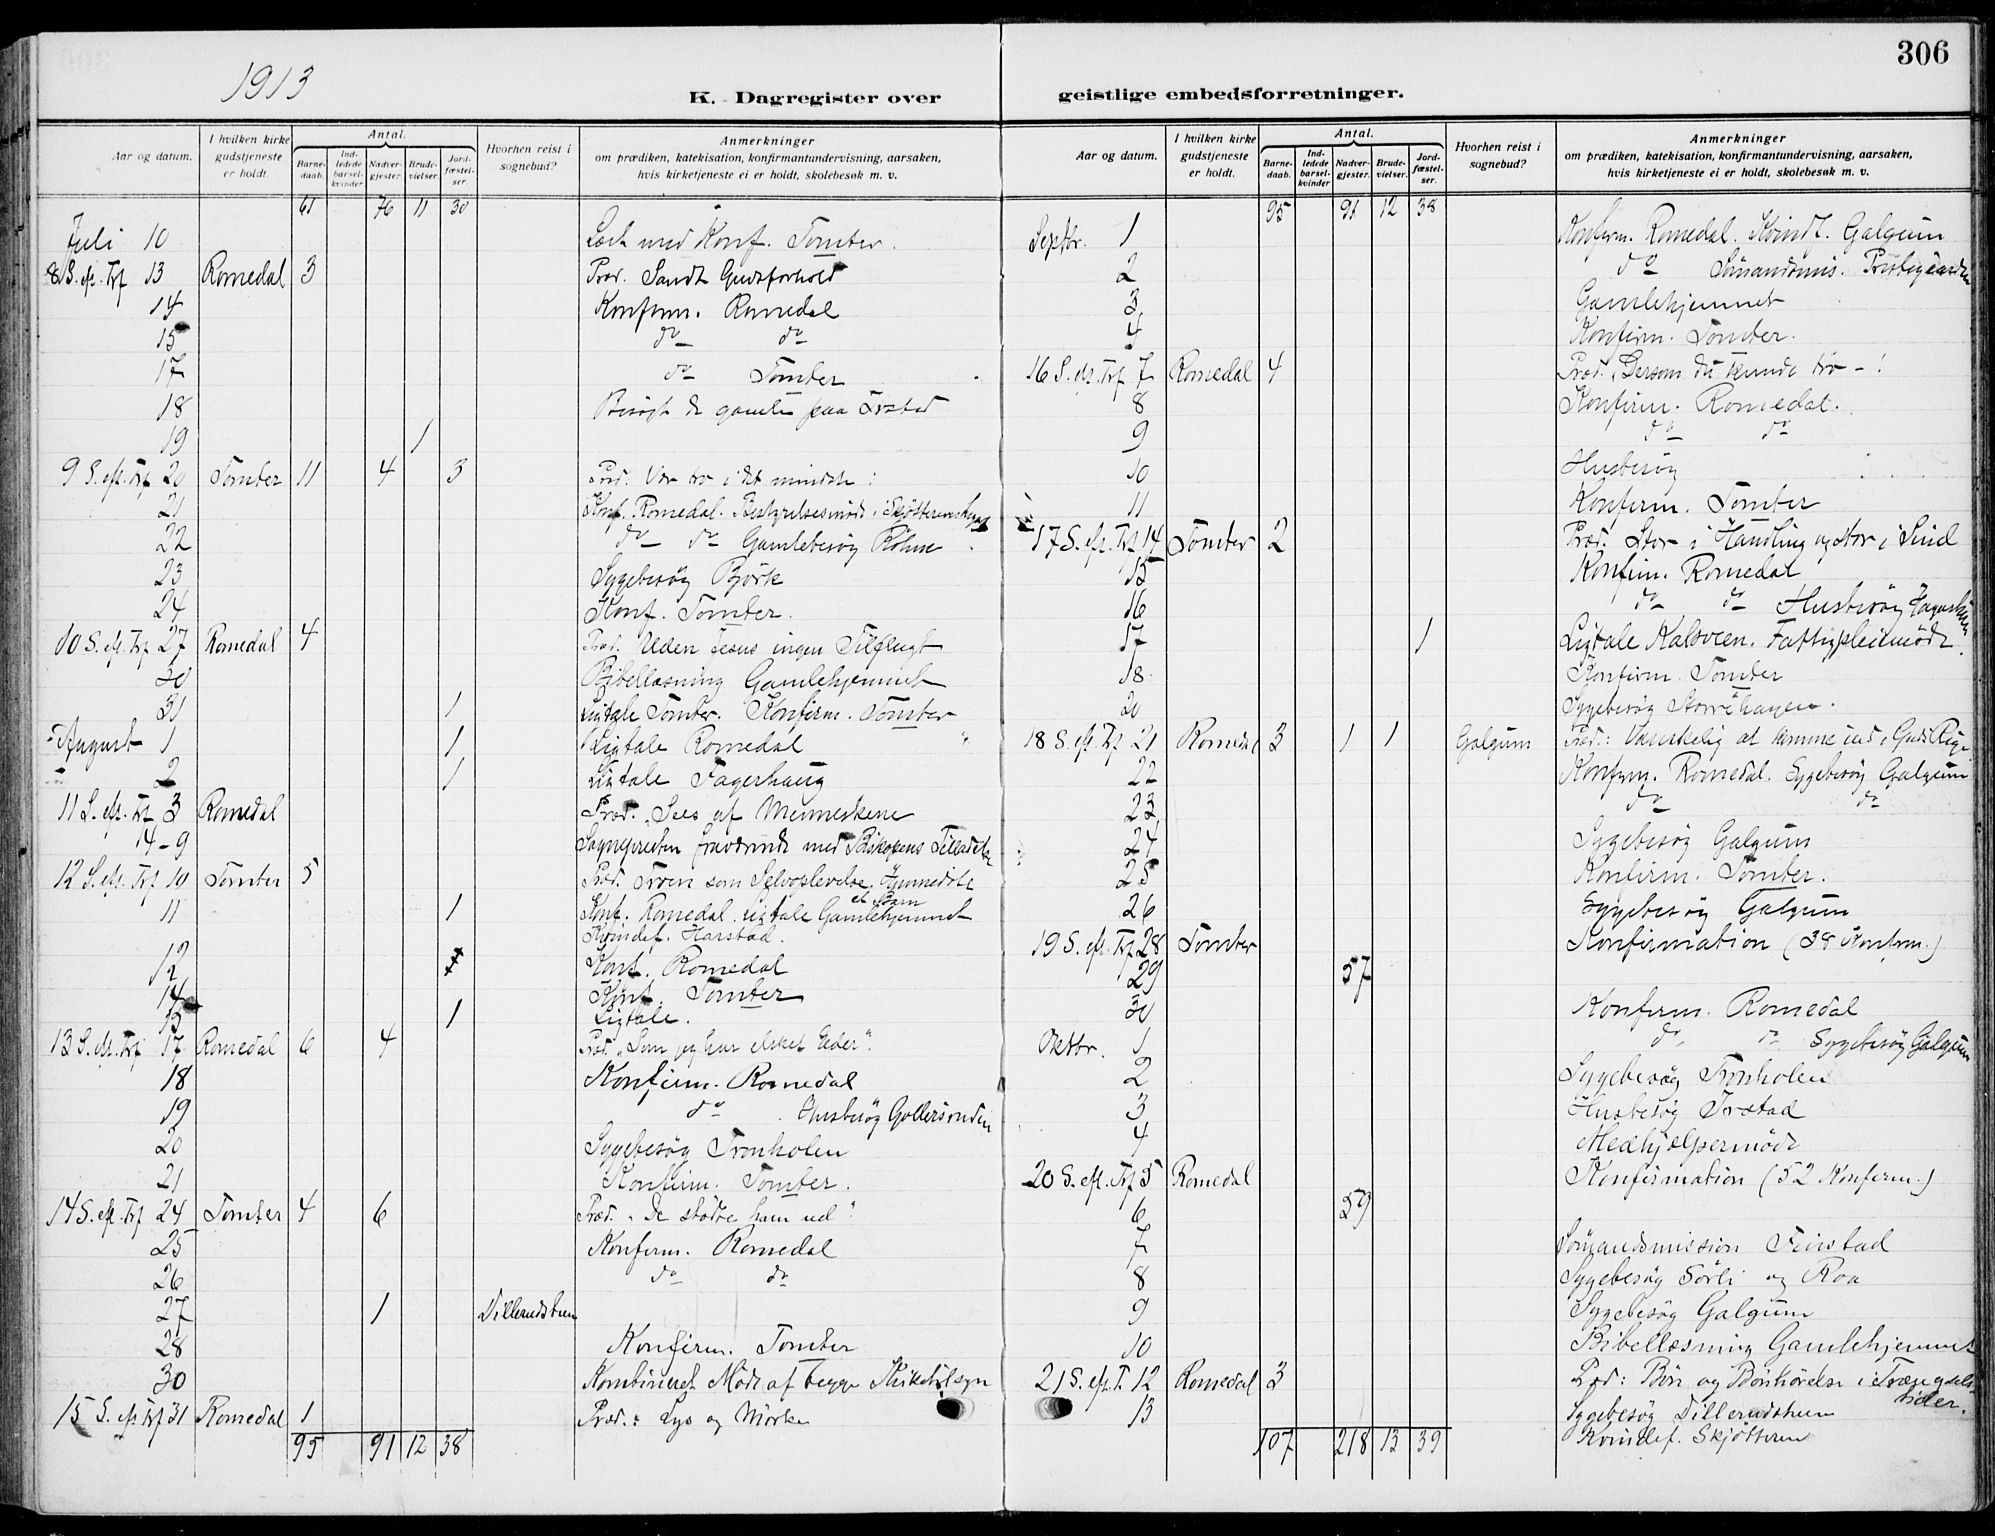 306
1913
K. Dagregister over geistlige embedsforretninger.
Aar og datum. I hvilken kirke gudstjeneste er holdt. Antal. Barne-daab. Ind-ledede barsel-kvinder Nadver-gjester. Brude-vielser. Jord-fæstel-ser. Hvorhen reist i sognebud? Anmerkninger om prædiken, katekisation, konfirmantundervisning, aarsaken, hvis kirketjeneste ei er holdt, skolebesøk m. v.
61 76 11 30
Juli 10 Læst med Konf. Tomter.
8 S. ef. Trf 13 Romedal 3 Præd. Sandt Gudsforhold
14 Konfirm. Romedal
15 do do
17 do Tomter
18 Besøgt de gamle paa
19 1
9 S. eft. Trf 20 Tomter 11 4 3 Præd. Vær tro i det mindste!
21 Konf. Romedal. Bestyrelsesmøde i
22 do do Gamlebesøg
23 Sygebesøg Björk
24 Konf. Tomter.
10 S. eft. Trf 27 Romedal 4 Præd. Uden Jesus ingen Tilflugt
30 Bibellæsning Gamlehjemmet
31 1 Ligtale Tomter. Konfirm. Tomter
August 1 1 Ligtale Romedal
2 1 Ligtale Fagerhaug
11 S. eft. Trf 3 Romedal Præd. Sees af Menneskene
4-9 Sognepresten fraværende med Biskopens Tilladelse
12 S. eft. Trf 10 Tomter 5 Præd. Troen som Selvoplevelse.
11 1 Konf. Romedal. Ligtale et Barn Gamlehjemmet
Kvindef. Harstad.
12 Konf. Romedal
14 Konf. Tomter
15 1 Ligtale.
13 S. eft. Trf 17 Romedal 6 4 Præd. "Som jeg har elsket Eder".
18 Konfirm. Romedal
19 do Husbesøg
20 Sygebesøg Tronholen
21 Konfirm. Tomter.
14 S. eft. Trf 24 Tomter 4 6 Præd. "De stødte ham ud".
25 Konfirm. Romedal
26 do do
27 1
28 Konfirm. Tomter
30 Kombineret Møde af begge
15 S. eft Trf 31 Romedal 1 Præd.: Lys og Mørke
95 91 12 38
Aar og datum. I hvilken kirke gudstjeneste er holdt. Antal. Barne-daab. Ind-ledede barsel-kvinder Nadver-gjester. Brude-vielser. Jord-fæstel-ser. Hvorhen reist i sognebud? Anmerkninger om prædiken, katekisation, konfirmantundervisning, aarsaken, hvis kirketjeneste ei er holdt, skolebesøk m. v.
95 91 12 38
Septbr. 1 Konfirm. Romedal. Kvindf. Galgum
2 do Sömandsmis. Prestegaarden
3 Gamlehjemmet
4 Konfirm. Tomter.
16 S. eft. Trf 7 Romedal 4 Præd. "Dersom du kunde tro -!
8 Konfirm. Romedal.
9 do do
10 Husbesøg
11 Konfirm. Tomter
17 S. eft. Trf 14 Tomter 2 Præd. Stor i Handling og stor i Sind
15 Konfirm. Romedal
16 do do Husbesøg
17 1 Ligtale Kalsveen.
18 Konfirm Tomter
20 Sygebesøg Storrehagen.
18 S. eft. Trf 21 Romedal 3 1 1 Galgum Præd.: Vanskelig at komme ind i Guds Rige
22 Konfirm. Romedal. Sygebesøg Galgum
23 do do
24 Sygebesøg Galgum
25 Konfirm. Tomter.
26 Sygebesøg Galgum
19 S. eft. Trf 28 Tomter Konfirmation (38 Konfirm.)
29 57
30 Konfirm. Romedal
Oktbr. 1 do do Sygebesøg Galgum
2 Sygebesøg Tronholen
3 Husbesøg
4 Medhjælpermøde
20 S. eft. Trf 5 Romedal Konfirmation (52 Konfirm.)
6 59
7 Sömandsmission Finstad
8 Sygebesøg Sörli og Roa
9 Sygebesøg Galgum
10 Bibellæsning Gamlehjemmet
21 S. eft. T. 12 Romedal 3 Præd: Bön og Bönhörelse i Trængsels-tider.
13 Sygebesøg
Kvindef. Skjötteren
107 218 13 39